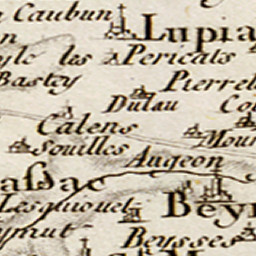 Caubun
Lupia
yle les Pericats
Bastey
Pierrel
Dulau
Cou
Calens
Mour
Souilles
Augeon
assac
Lesquouet
Bey
ymut
Beysses